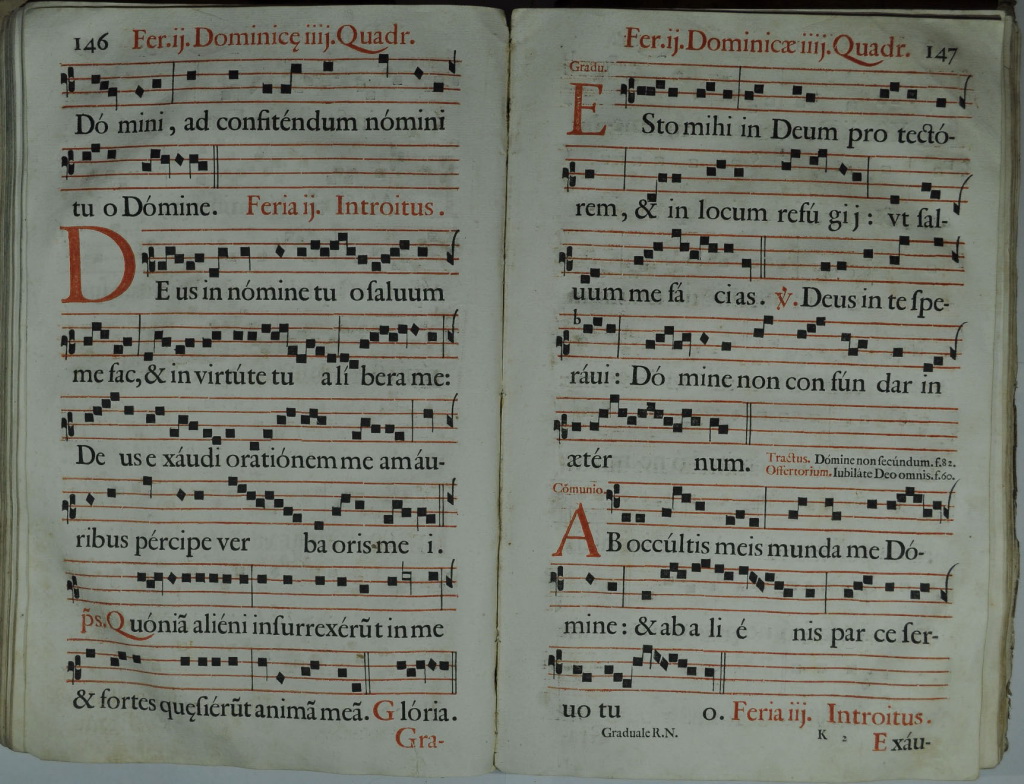 146 Fer.ij. Dominicę iiij. Quadr.
Dó mini, ad confiténdum nómini
tu o Dómine. Feria ij. Introitus.
D E us in nómine tu o ſaluum
me fac, & in virtúte tu a lí bera me:
De us e xáudi oratiónem me am áu-
ribus pércipe ver ba oris me i.
p̃s. Q uóniã aliéni inſurrexérũt in me
& fortes quęſiérũt animã meã. G lória.
Gra-
Fer.ij. Dominicæ iiij. Quadr. 147
Gradu.
E Sto mihi in Deum pro tectó-
rem, & in locum refú gij: vt ſal-
uum me fá ci as. ℣. Deus in te ſpe-
ráui: Dó mine non con fún dar in
ætér num. Tractus. Dómine non ſecúndum. f.82.
Offertorium. Iubiláte Deo omnis. f.60.
Cómunio.
A B occúltis meis munda me Dó-
mine: & ab a li é nis par ce ſer-
uo tu o. Feria iij. Introitus.
Graduale R.N. K 2 E xáu-